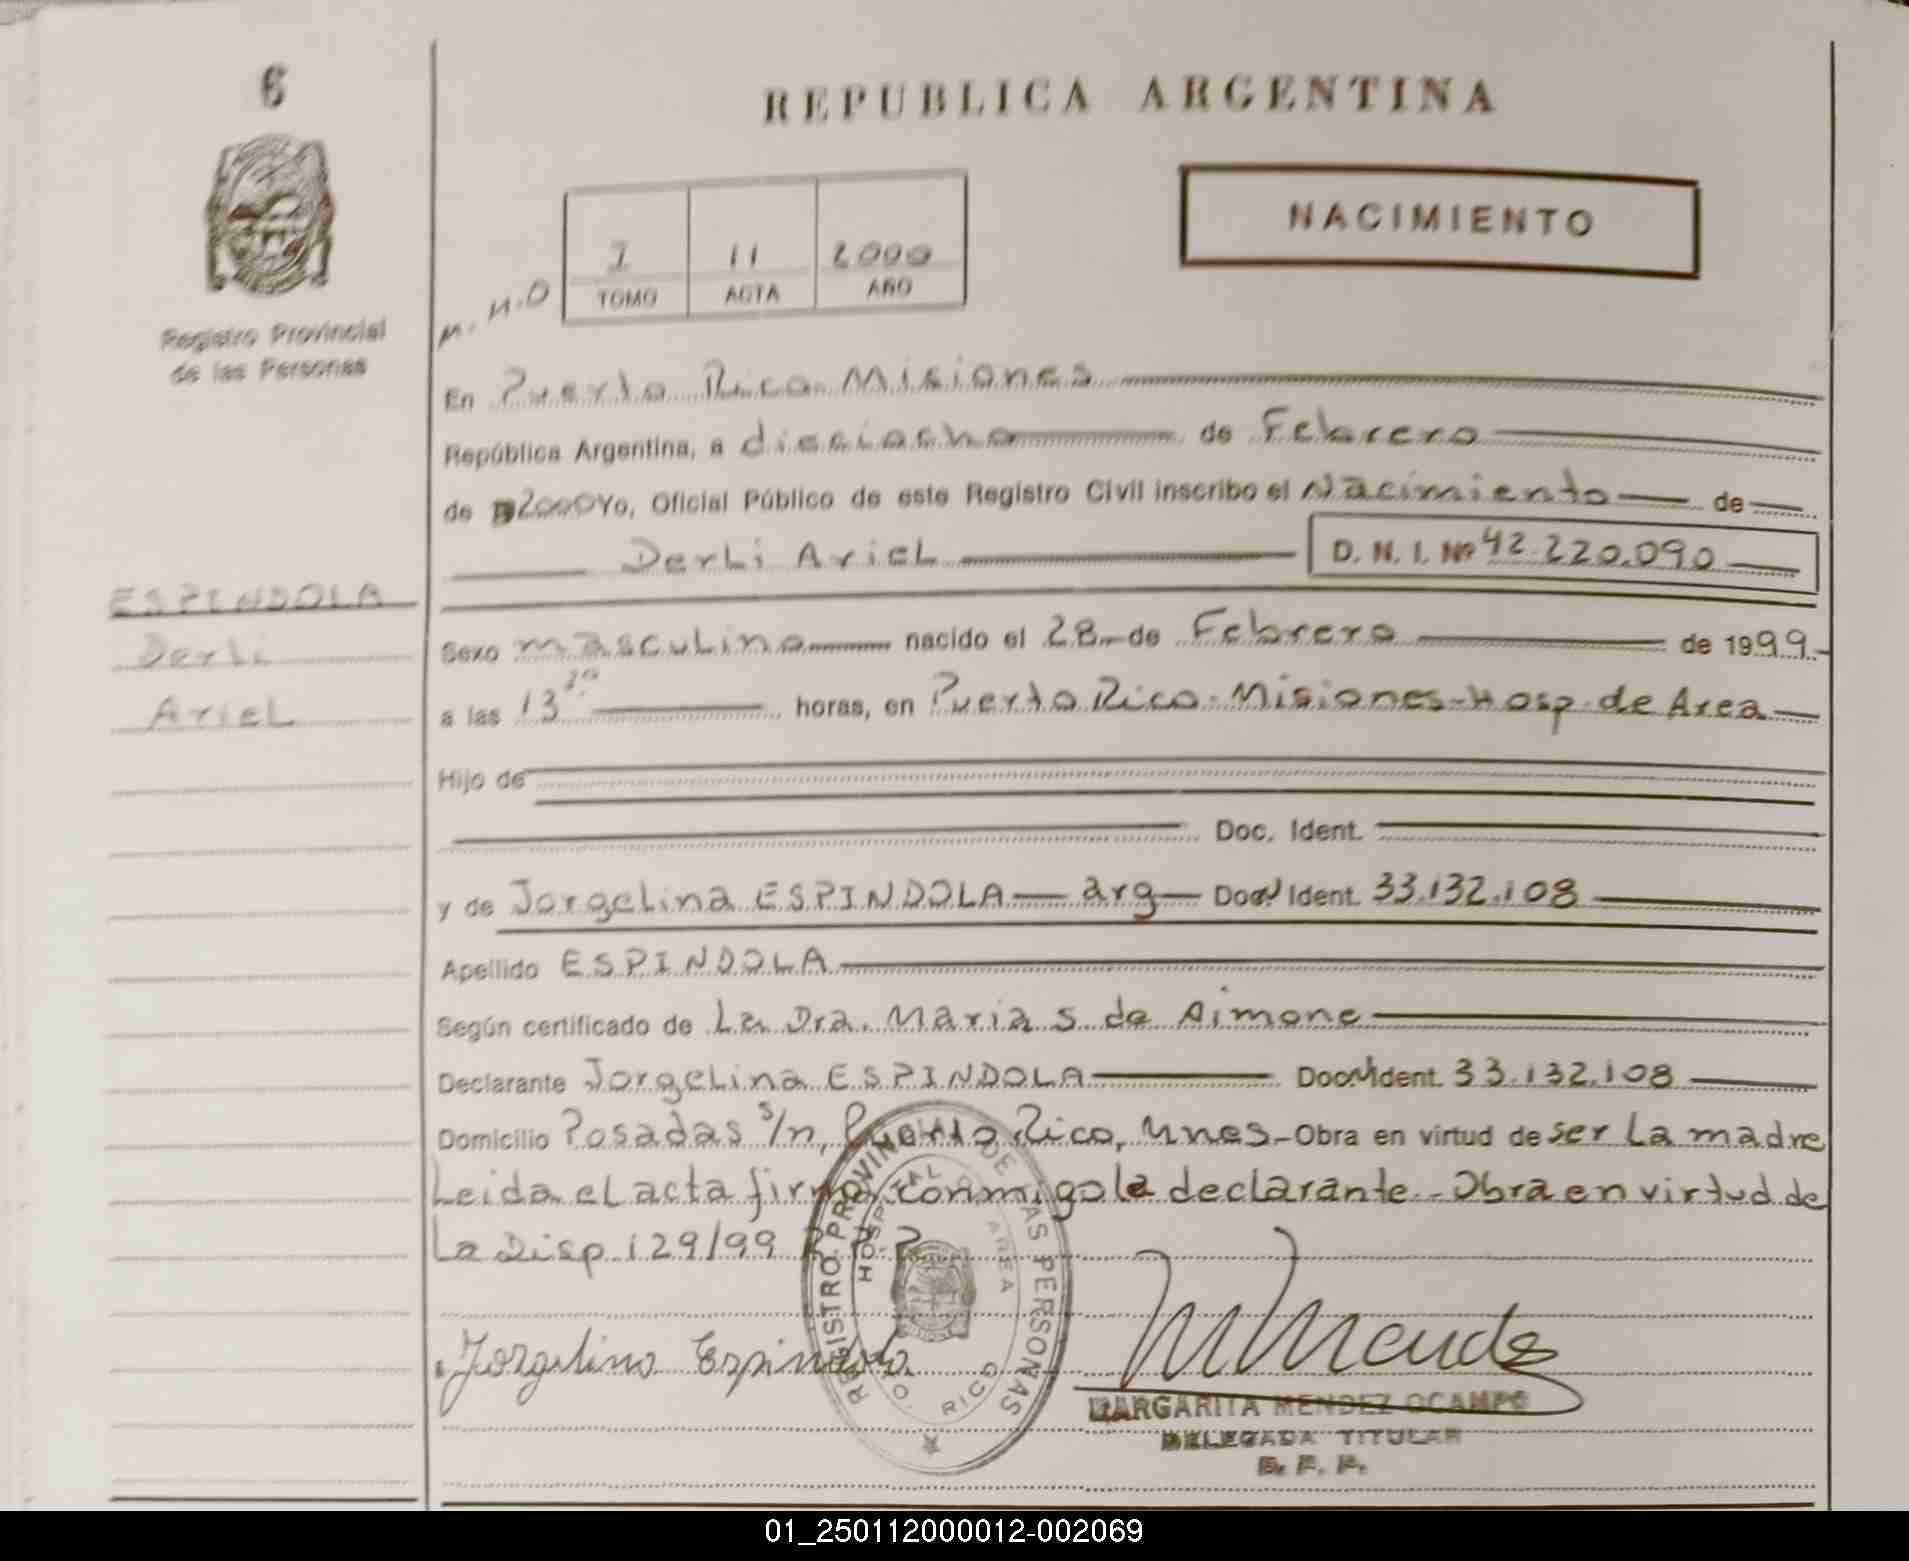 6
REPUBLICA ARGENTINA
NACIMIENTO
I 11 2000
TOMO ACTA AÑO
M. N.O
Registro Provincial
de las Personas
En Puerto Rico Misiones
República Argentina, a dieciocho de Febrero
de 2000 Yo, Oficial Público de este Registro Civil inscribo el Nacimiento de
Derli Ariel D. N. I. Nº 42.220.090
ESPINDOLA
Derli
Ariel
Sexo masculino nacido el 28 de Febrero de 1999
a las 13 horas, en Puerto Rico - Misiones - Hosp. de Area
Hijo de
Doc. Ident.
y de Jorgelina ESPINDOLA arg Doc. Ident. 33.132.108
Apellido ESPINDOLA
Según certificado de La Dra. Maria S. de Aimone
Declarante Jorgelina ESPINDOLA Doc. Ident. 33.132.108
Domicilio Posadas s/n, Puerto Rico, Mnes - Obra en virtud de ser La madre
Leida el acta firma conmigo la declarante - Obra en virtud de
La Disp 129/99
REGISTRO PROVINCIAL DE LAS PERSONAS
HOSPITAL DE AREA
PTO. RICO
Jorgelina Espindola
M Mendez
MARGARITA MENDEZ OCAMPO
DELEGADA TITULAR
01_250112000012-002069